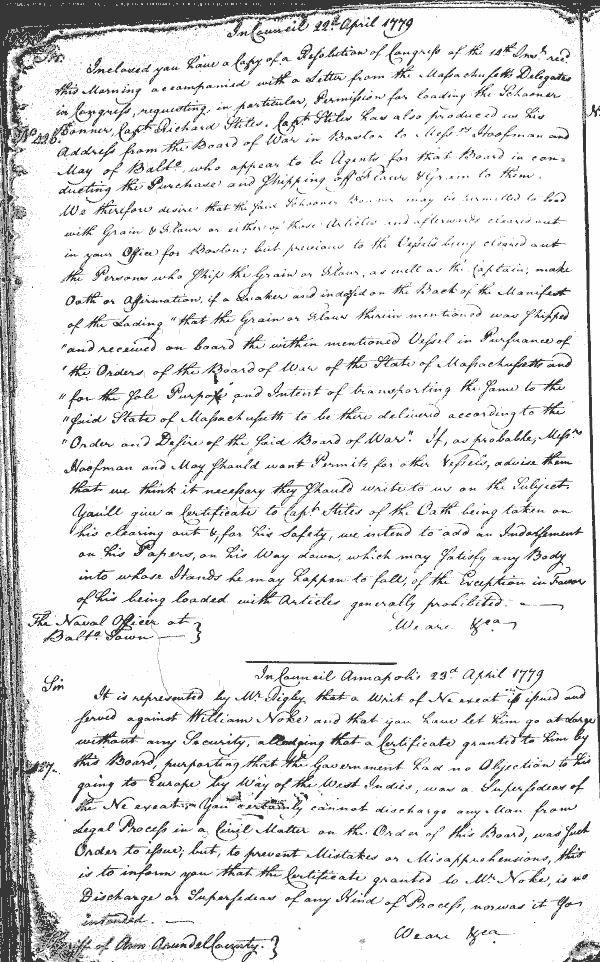 In Council 22d April 1779
Sir.
Inclosed you have a Copy of a Resolution of Congress of the 14th Inst. recd.
this Morning accompanied with a Letter from the Massachusetts Delegates
in Congress, requesting, in particular, Permission for loading the Schooner
Bonner Capt Richard Stiles. Capt Stiles has also produced us his
Address from the Board of War in Boston to Messrs Hoofman and
May of Balto. who appear to be Agents for that Board in con-
ducting the Purchase and Shipping off Flour & Grain to them.
We therefore desire that the said Schooner Bonner may be permitted to load
with Grain & Flour or either of those Articles and afterwards cleared out
in your Office for Boston; but previous to the Vessels being cleared out
the Persons who Ship the Grain or Flour, as well as the Captain, make
Oath or Affirmation, if a Quaker and indorsed on the Back of the Manifest
of the Lading "that the Grain or Flour therein mentioned was Shipped
"and received on board the within mentioned Vessel in Pursuance of
"the Orders of the Board of War of the State of Massachusetts and
"for the Sole Purpose and Intent of transporting the Same to the
"said State of Massachusetts to be there delivered according to the
"Order and Desire of the said Board of War". If, as probable, Messrs
Hoofman and May should want Permits for other Vessels, advise them
that we think it necessary they should write to us on the Subject.
You'll give a Certificate to Capt Stiles of the Oath being taken on
his clearing out & for his Safety, we intend to add an Indorsement
on his Papers, on his Way down, which may satisfy any Body
into whose Hands he may happen to fall, of the Exception in Favor
of his being loaded with Articles generally prohibited.
We are &ca
The Naval Officer at
Balto Town
In Council Annapolis 23d April 1779
Sir
It is represented by Mr. Digby that a Writ of Ne exeat is issued and
served against William Noke and that you have let him go at Large
without any Security, alledging that a Certificate granted to him by
this Board, purporting that the Government had no Objection to his
going to Europe by Way of the West Indies, was a Supersedeas of
the Ne exeat; You certainly cannot discharge any Man from
Legal Process in a Civil Matter on the Order of this Board, was such
Order to issue; but, to prevent Mistakes or Misapprehensions, this
is to inform you that the Certificate granted to Mr Noke, is no
Discharge or Supersedeas of any Kind of Process, nor was it so
intended.
We are &ca
Sheriff of Ann Arundel County.